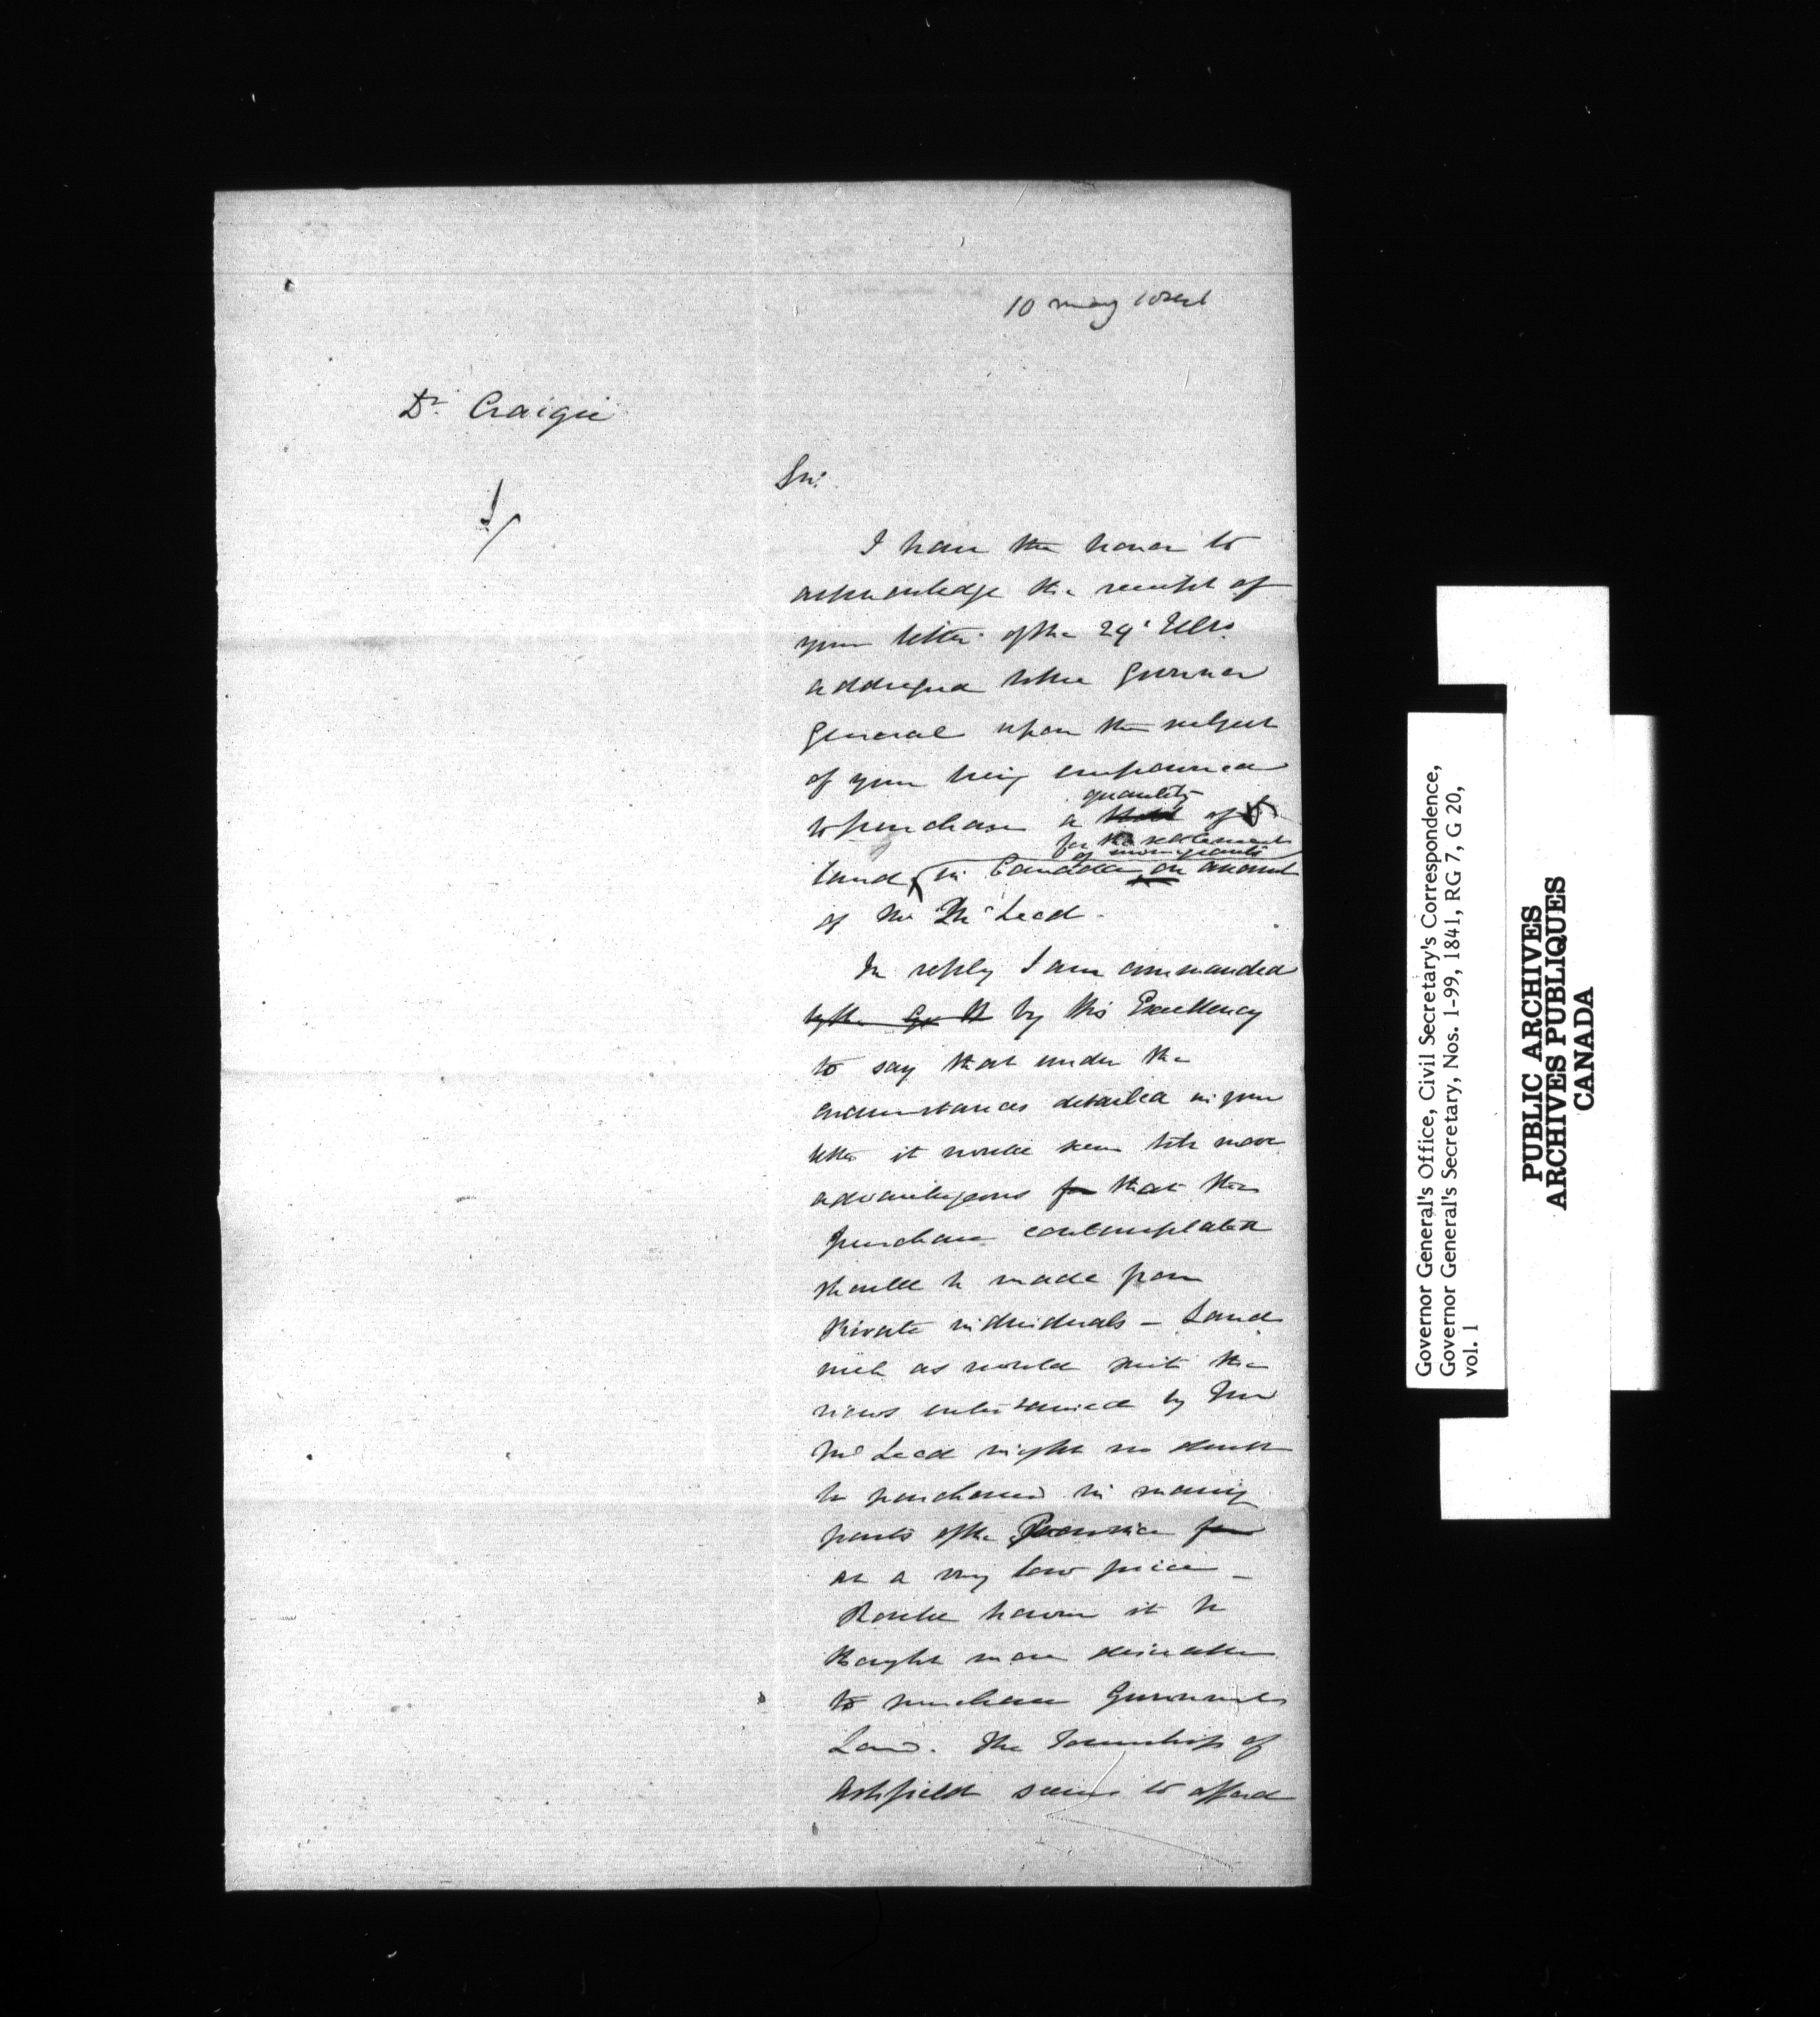 10 May 1841
Dr. Craigie
Sir.
I have the honor to
acknowledge the receipt of
your letter of the 29' Ulto.
addressed to the Governor
General upon the subject
of your being empowered
quantity
to purchase a of
for the settlement
of immigrants
land in Canada on account
of Mr McLeod.
In reply I am commanded
by the by His Excellency
to say that under the
circumstances detailed in your
letter it would seem to be more
advantageous for that the
purchase contemplated
should be made from
Private individuals – Land
such as would suit the
views entertained by Mr
McLeod might no doubt
be purchased in many
parts of the Province for
at a very low price –
Should however it be
thought more desirable
to purchase Government
Land. The Township of
Ashfield seems to afford
Governor General's Office, Civil Secretary's Correspondence,
Governor General's Secretary, Nos. 1-99, 1841, RG 7, G 20,
vol. 1
PUBLIC ARCHIVES
ARCHIVES PUBLIQUES
CANADA